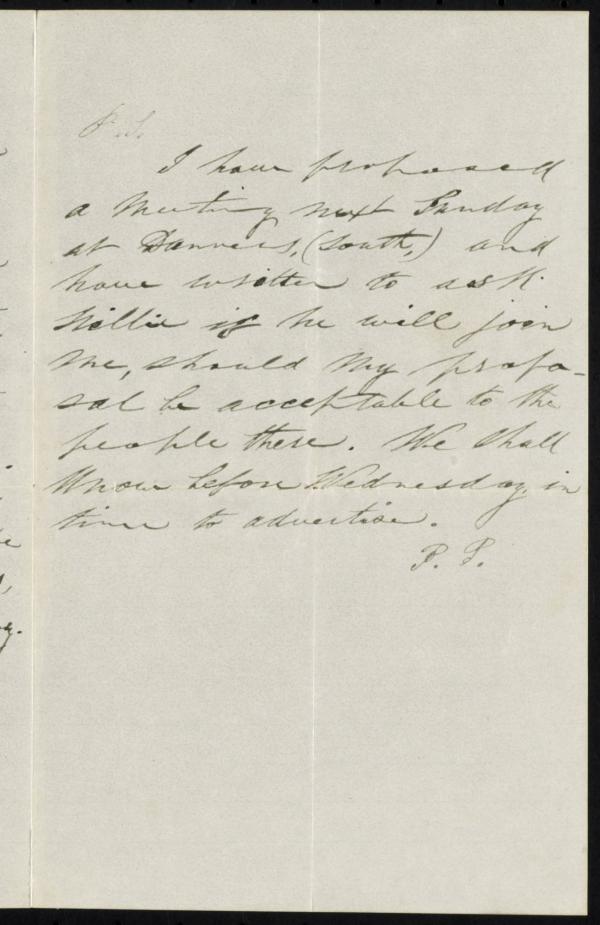 P.S.
I have proposed
a Meeting next Sunday
at Danvers, (South,) and
have written to ask
Willie if he will join
me, should my propo-
sal be acceptable to the
people there. We shall
know before Wednesday, in
time to advertise.
P. P.